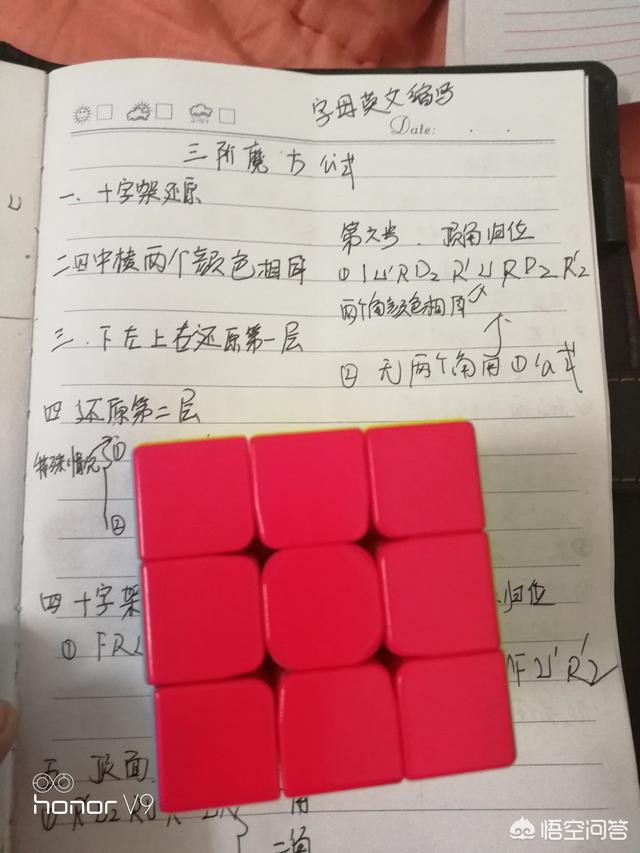 字母英文缩写
Date:
三阶魔方公式
一、十字架还原
二四中棱两个颜色相同
三、下左上右还原第一层
四 还原第二层
特殊情况 ①
②
四 十字架
① FR
五、顶面
第六步、顶角归位
R D2 R' U' R D2 R'2
两个角颜色相同
② 无两个角用①公式
归位
F U' R'2
角
三角
honor V9
悟空问答